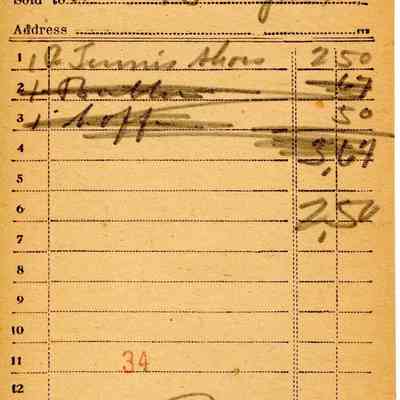 Sold to
Address
1 1 Tennis Shoes 2 50
2 67
3 50
4 3,67
5
6 2,50
7
8
9
10
11 34
12